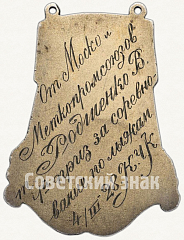 От Моско и
Меткопромсоюзов
Родшенко В
приз за соревно
вание по лыжам
4/III 33 г.
Советский знак